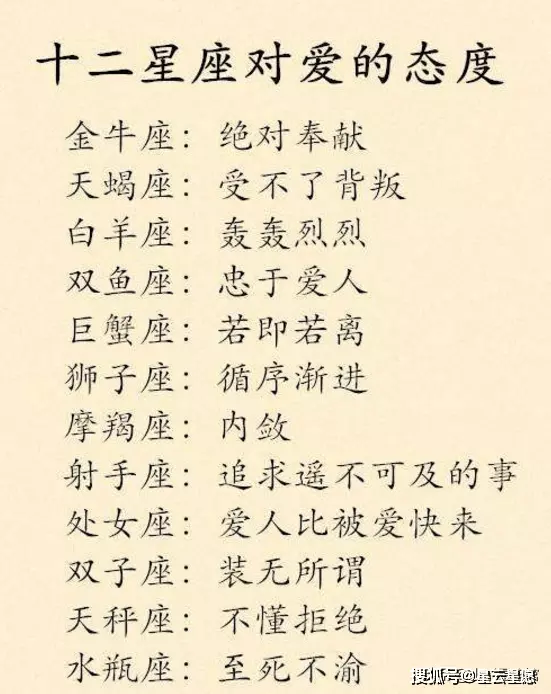 十二星座对爱的态度
金牛座：绝对奉献
天蝎座：受不了背叛
白羊座：轰轰烈烈
双鱼座：忠于爱人
巨蟹座：若即若离
狮子座：循序渐进
摩羯座：内敛
射手座：追求遥不可及的事
处女座：爱人比被爱快来
双子座：装无所谓
天秤座：不懂拒绝
水瓶座：至死不渝
搜狐号@星云星愿